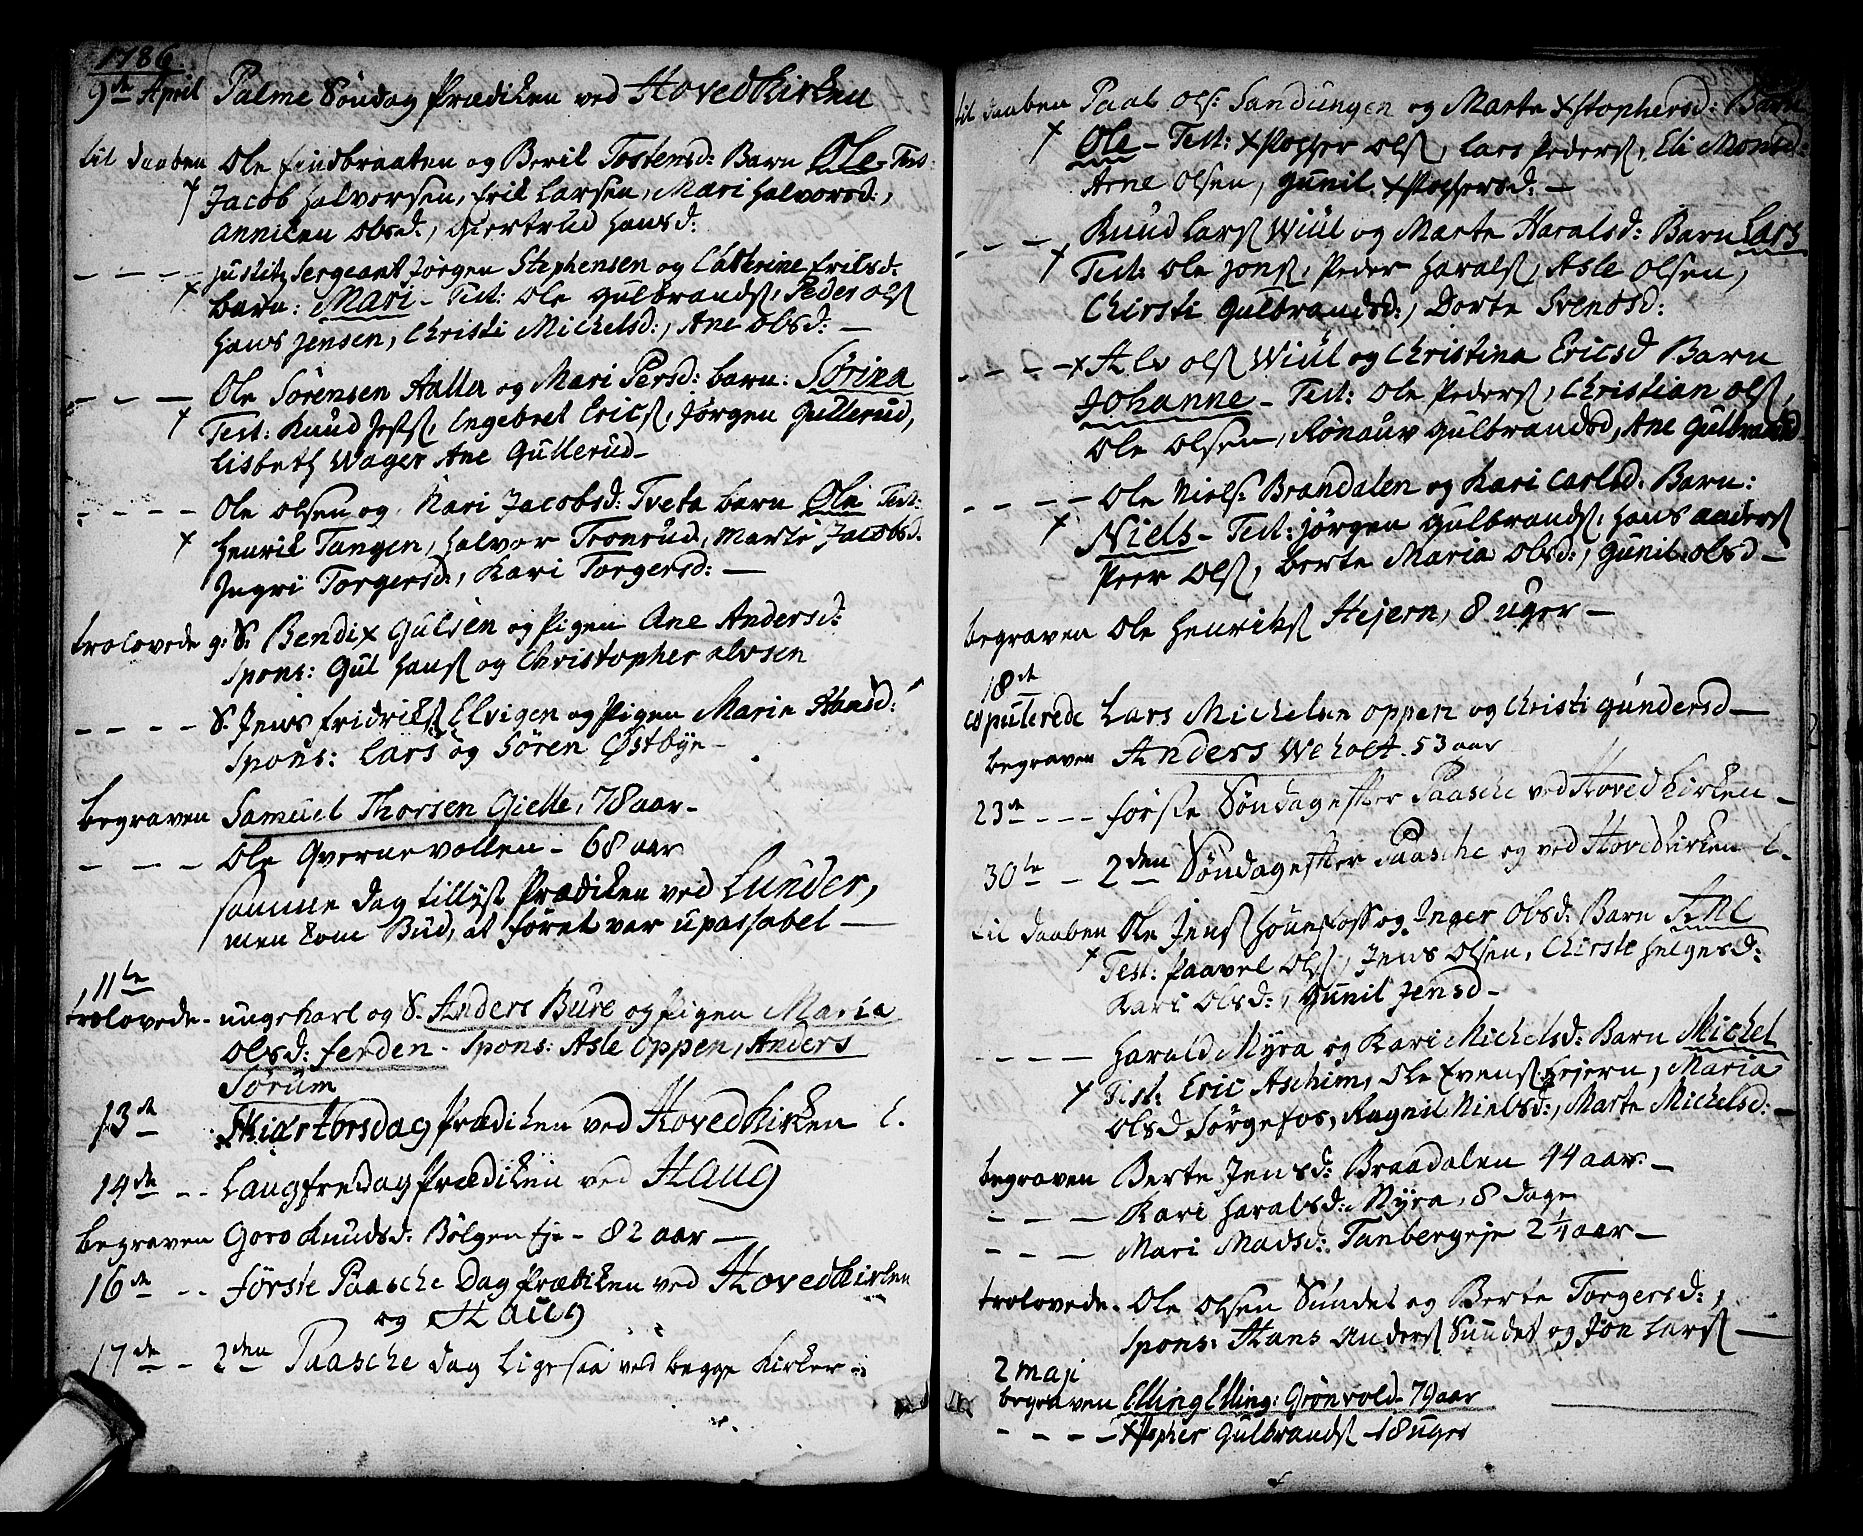 1786.
9de April Palme Söndag Prædiken ved HovedKirken
til daaben Ole findbraaten og Beril Tostensd: Barn Ole - Test:
Jacob Halvorsen, Erik Larsen, Mari Halvorsd:,
Anniken Olsd:, Giertrud Hansd:
- - - - Justitz Sergeant Jörgen Stephensen og Catterine Eriksd:
barn: Mari - Test: Ole Gulbrands, Peder Ols
Hans Jensen, Christi Michelsd:, Ane Olsd: -
- - - Ole Sörensen Aalla og Mari Persd: barn: Sörina
Test: Knud Jess, Engebret Erics, Jörgen Gullerud,
Lisbeth Wager Ane Gullerud -
- - - - Ole Olsen og Kari Jacobsd: Tveta barn Ole Test:
Henrik Tangen, Halvor Tronrud, Marte Jacobsd:
Ingri Torgersd:, Kari Torgersd: -
trolovede g: S. Bendix Gulsen og Pigen Ane Andersd:
Spons: Gul Hans og Christopher Alvsen
- - - - S. Jens Fridriks Elvigen og Pigen Marie Hansd:
Spons: Lars og Sören Østbye -
begraven Samuel Thorsen Gielle, 78 aar -
- - - Ole Qvernevollen - 68 aar
samme Dag tillyst Prædiken ved Lunder,
men kom Bud, at föret var upassabel -
11te
trolovede - ungekarl og S. Anders Bure og Pigen Maria
Olsd: ferden - Spons: Asle Oppen, Anders
Sörum
13de Skiertorsdag Prædiken ved HovedKirken C.
14de - - Langfredag Prædiken ved Haug
begraven Goro Knudsd: Bölgen Eje - 82 aar -
16de - - förste Paasche Dag Prædiken ved HovedKirken
og Haug
17de - 2den Paasche Dag ligesaa ved begge Kirker -
til daaben Paal Ols: Sandungen og Marte Xstophersd: Barn
Ole - Test: Xstopher Ols, Lars Peders, Eli Monsd:
Arne Olsen, Gunil Xstophersd: -
- - - Knud Lars Wiul og Marte Haralsd: Barn Lars
Test: Ole Jons, Peder Harals, Asle Olsen,
Chirsti Gulbrandsd:, Dorte Svendsd:
- - - - Alv Ols Wiul og Christina Ericsd Barn
Johanne - Test: Ole Peders, Christian Ols,
Ole Olsen, Rönauv Gulbrandsd, Ane Gulbrandsd
- - - - Ole Niels: Brandalen og Kari Carlsd: Barn:
Niels - Test: Jörgen Gulbrands, Hans Anders
Peer Ols, Berte Maria Olsd:, Gunil Olsd -
begraven Ole Henriks Hejern, 8 uger -
18de
copulerede Lars Michelsen Oppen og Christi Gundersd -
begraven Anders Weholt. 53 aar
23de - - - förste Söndag efter Paasche ved HovedKirken -
30te - 2den Söndag efter Paasche og ved Hovedkirken C.
til daaben Ole Jens Hönefoss og Inger Olsd: Barn Ane
Test: Paavel Ols, Jens Olsen, Chirste Helgesd:
Kari Olsd:, Gunil Jensd -
- - - - Harald Myra og Kari Michelsd: Barn Michel
Test: Eric Aschim, Ole Evens Hejern, Maria
Olsd Sörgefos, Ragnil Nielsd:, Marte Michelsd: -
begraven Berte Jensd: Braadalen 44 aar -
- - - Kari Haralsd: Myra, 8 Dage
- - - Mari Madsd: Tanbergeje 2 1/4 aar -
trolovede - Ole Olsen Sundet og Berte Torgersd:,
Spons: Hans Anders Sundet og Jon Lars -
2 maji
begraven Elling Elling: Grönvold - 79 aar
- - - - Xstopher Gulbrands - 18 uger